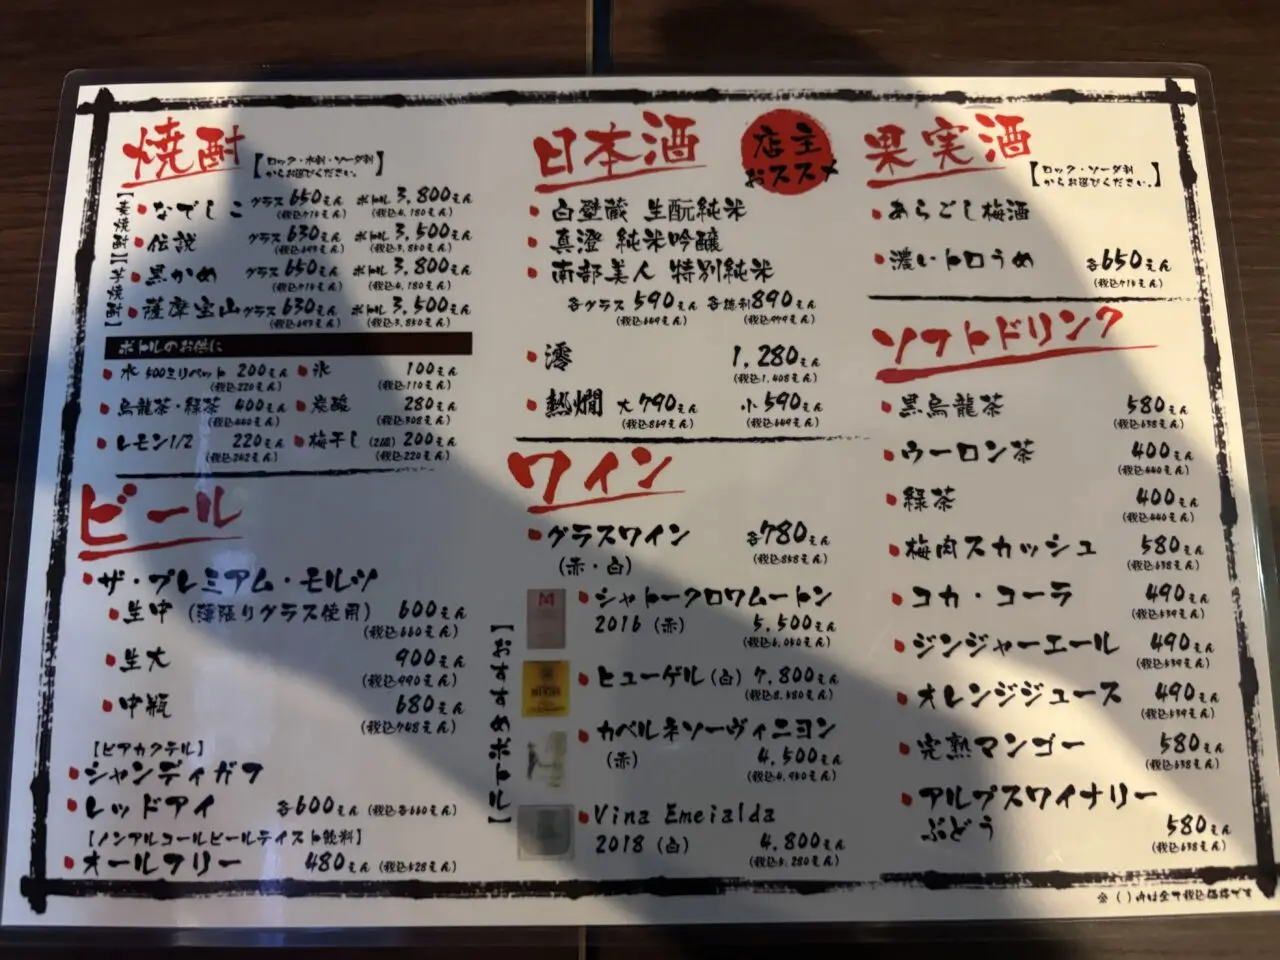 焼酎
【ロック・水割・ソーダ割
からお選びください。】
【麦焼酎】
・なでしこ グラス 650えん ボトル 3,800えん
(税込715えん) (税込4,180えん)
・伝説 グラス 630えん ボトル 3,500えん
(税込693えん) (税込3,850えん)
【芋焼酎】
・黒かめ グラス 650えん ボトル 3,800えん
(税込715えん) (税込4,180えん)
・薩摩宝山 グラス 630えん ボトル 3,500えん
(税込693えん) (税込3,850えん)
ボトルのお供に
・水 500ミリペット 200えん ・氷 100えん
(税込220えん) (税込110えん)
・烏龍茶・緑茶 400えん ・炭酸 280えん
(税込440えん) (税込308えん)
・レモン1/2 220えん ・梅干し(2個) 200えん
(税込242えん) (税込220えん)
ビール
・ザ・プレミアム・モルツ
・生中(薄張りグラス使用) 600えん
(税込660えん)
・生大 900えん
(税込990えん)
・中瓶 680えん
(税込748えん)
【ビアカクテル】
・シャンディガフ
・レッドアイ 各600えん(税込各660えん)
【ノンアルコールビールテイスト飲料】
・オールフリー 480えん(税込528えん)
日本酒
店主
おススメ
・白壁蔵 生酛純米
・真澄 純米吟醸
・南部美人 特別純米
各グラス 590えん 各徳利 890えん
(税込649えん) (税込979えん)
・澪 1,280えん
(税込1,408えん)
・熱燗 大790えん 小590えん
(税込869えん) (税込649えん)
ワイン
・グラスワイン 各780えん
(赤・白) (税込858えん)
【おすすめボトル】
・シャトークロワムートン
2016(赤) 5,500えん
(税込6,050えん)
・ヒューゲル(白) 7,800えん
(税込8,580えん)
・カベルネソーヴィニヨン
(赤) 4,500えん
(税込4,950えん)
・Vina Emeialda
2018(白) 4,800えん
(税込5,280えん)
果実酒
【ロック・ソーダ割
からお選びください。】
・あらごし梅酒
・濃いトロうめ 各650えん
(税込715えん)
ソフトドリンク
・黒烏龍茶 580えん
(税込638えん)
・ウーロン茶 400えん
(税込440えん)
・緑茶 400えん
(税込440えん)
・梅肉スカッシュ 580えん
(税込638えん)
・コカ・コーラ 490えん
(税込539えん)
・ジンジャーエール 490えん
(税込539えん)
・オレンジジュース 490えん
(税込539えん)
・完熟マンゴー 580えん
(税込638えん)
・アルプスワイナリー
ぶどう 580えん
(税込638えん)
※( )内は全て税込価格です